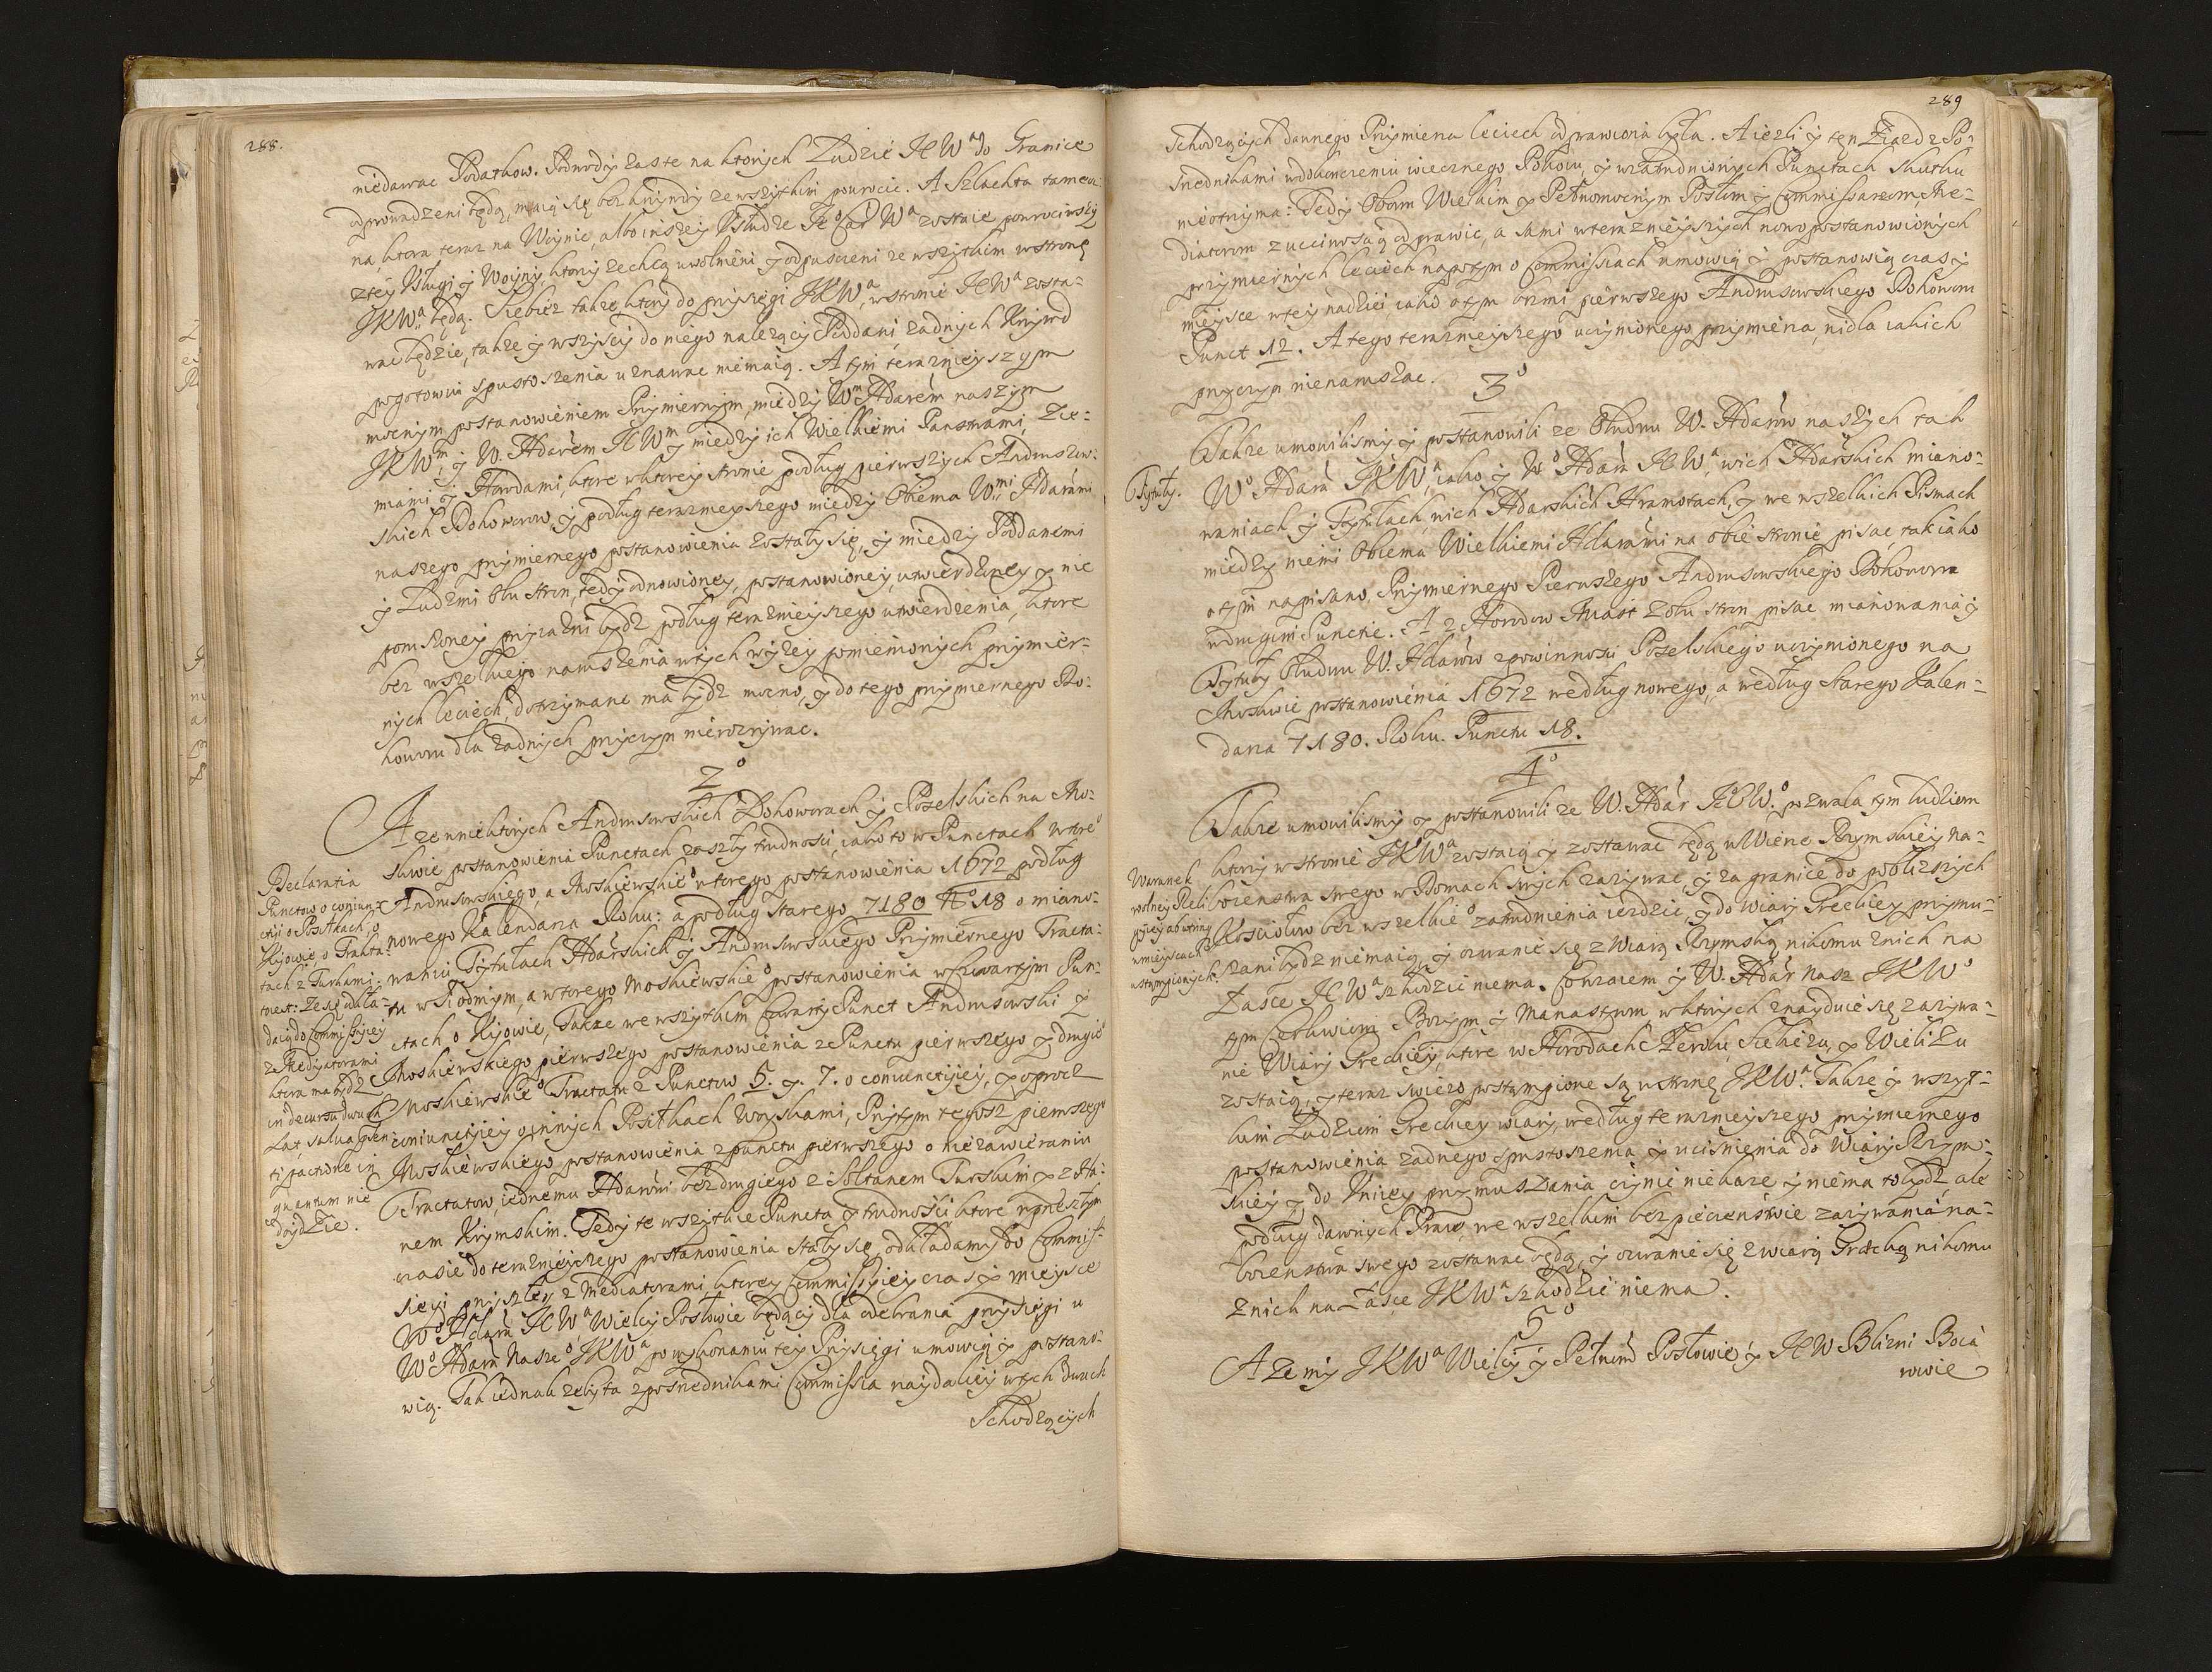 288.
niedawac Podatkow. Podwody zaste na ktorych Ludzie JCWa do Granice
odprowadzeni będą, maią się bez krzywdy ze wszytkim powrocic. A Szlachta tameczna
na ktora teraz na Woynie, albo inszey Usłudze Jeo Car Wa zostaie powrociwszy
z tey Usługi y Woyny, ktorzy zechcą uwolnieni y odpusczeni ze wszytkim w stronę
JKWa będą. Siebiez także, ktory do przysięgi JKWa, w stronie JCWa zosta-
wac będzie, także y wszyscy do niego należący Poddani, żadnych Krzywd
pogotowiu spustoszenia uznawac niemaią. A tym teraznieyszym
mocnym postanowieniem Przymiernym, miedzy Wm Hdarem naszym
JKWm, y W. Hdarem JCWm y miedzy ich Wielkiemi Panstwami, Zie-
miami y Horodami, ktore w ktorey stronie podług pierwszych Andruszow-
skich Dohoworow, y podług teraznieyszego miedzy Obiema Wmi Hdarami
naszego przymiernego postanowienia zostały się, y miedzy Poddanemi
y Ludzmi Obu stron, tedy odnowioney, postanowioney, utwierdzoney y nie
poruszoney przyiazni bydz podług teraznieyszego utwierdzenia, ktore
bez wszelkiego naruszenia w tych wyżey pomienionych przymier-
nych leciech, dotrzymane ma bydz mocno, y do tego przymiernego Do-
howoru dla żadnych przyczyn nierozrywac.
2o
A ze w niektorych Andruszowskich Dohoworach y Poselskich na Mo-
skwie postanowienia Punctach zaszły trudności, iako to w Punctach Wtoreo
Andruszowskiego, a Moskiewskieo wtorego postanowienia 1672 podług
nowego Kalendarza Roku: a podług starego 7180 No 18 o miano-
waniu Tytułach Hdarskich y Andruszowskiego Przymiernego Tracta-
tu w Siodmym, a wtorego Moskiewskieo postanowienia w Czwartym Pun-
ctach o Kijowie, Także we wszytkim Czwarty Punct Andruszowski y
Moskiewskiego pierwszego postanowienia z Punctu pierwszego y drugieo
Moskiewskieo Tractatu z Punctow 5. y. 7. o coniunctiey, y oprocz
coniunctiey o innych Posiłkach Woyskami, Przytym tegosz pierwszego
Moskiewskiego postanowienia z punctu pierwszego o niezawieraniu
Tractatow, iednemu Hdarowi bez drugiego z Sołtanem Turskim y z Cha-
nem Krymskim. Tedy te wszytkie Puncta y trudności ktore w przeszłym
czasie do teraznieyszego postanowienia stały się, odkładamy do Commis-
siey przyszłey z Mediatorami, ktorey Commissyiey czas y mieysce
Wo Hdara JCWa Wielcy Posłowie będący dla odebrania przysięgi u
Wo Hdara Naszeo JKWa po wykonaniu tey Przysięgi umowią y postano-
wią. Tak iednak żeby ta z posrednikami Commissia naydaley w tych dwuch
Schodzących
Declaratia
Punctow o coniun-
ctij o Posiłkach, o
Kijowie, o Trakta-
tach z Turkami.
to iest: Ze się odkła-
daią do Commissyiey
z Mediatorami
ktora ma bydz
in decursu dwuch
Lat, salva praesen-
ti pactione in
quantum nie
doydzie.
289
Schodzących dannego Przymierza leciech odprawiona była. A iezli y ten Ziazd z Po-
srednikami w dokonczeniu wiecznego Pokoiu, y w zatrudnionych Punctach skutku
nieotrzyma: Tedy Obom Wielkim y Pełnomocnym Posłom y Commissarzom, Me-
diatorom z uczciwością odprawic, a sami w teraznieyszych nowopostanowionych
przymiernych leciech napotym o Commissiach umowią y postanowią czas y
mieysce w tey nadziei, iako o tym brzmi pierwszego Andruszowskiego Dohoworu
Punct 12. A tego teraznieyszego uczynionego przymierza, nidla iakich
przyczyn nienaruszac.
3o
Także umowilismy y postanowili ze Obudwu W. Hdarow naszych tak
Wo Hdara JKWa, iako y Wo Hdara JCWa, w ich Hdarskich miano-
waniach y Tytułach, w ich Hdarskich Hramotach, y we wszelkich Pismach
miedzy niemi Obiema Wielkiemi Hdarami na obie stronie pisac, tak iako
o tym napisano, Przymiernego Pierwszego Andruszowskiego Dohoworu
w drugim Punctie. A z Horodow Miast z obu stron pisac mianowania y
Tytuły Obudwu W. Hdarow z powinności Poselskiego uczynionego na
Moskwie postanowienia 1672 według nowego, a według starego Kalen-
darza 7180. Roku. Punctu 18.
Tytuły.
4o
Także umowilismy y postanowili ze W. Hdar JeoCW.o pozwala tym ludziom
ktorzy w stronie JKWa zostaią y zostawac będą w Wierze Rzymskiey na-
bożenstwa swego w Domach swych zażywac, y za granice do pobliższych
Kosciołow bez wszelkieo zatrudnienia iezdzic, y do wiary Greckiey przymu-
szani bydz niemaią, y ozwanie się z Wiarą Rzymską nikomu z nich na
Łasce JCWa szkodzic niema. Wzaiem y W. Hdar Nasz JKWo
tym Cerkwiom Bożym y Manastyrom w ktorych znayduie się zażywa-
nie Wiary Greckiey, ktore w Horodach Newlu, Siebieżu, y Wieliżu
zostaią, y teraz swiezo postąpione są w stronę JKWa. Także y wszyt-
kim Ludziom Greckiey wiary, według teraznieyszego przymiernego
postanowienia żadnego spustoszenia y ucisnienia do Wiary Rzym-
skiey y do Uniey przymuszania czynic niekaże y niema to bydz, ale
podług dawnych Praw, we wszelkim bezpieczenstwie zażywania na-
bożenstwa swego zostawac będą, y ozwanie się z wiarą Grecką nikomu
z nich na Łasce JKWa szkodzic niema.
Warunek
wolney Reli
giey ab utrinq
w mieyscach
ustąpionych.
5o
A ze my JKWa Wielcy y Pełnomo Posłowie, y JCW Blizni Boia
rowie